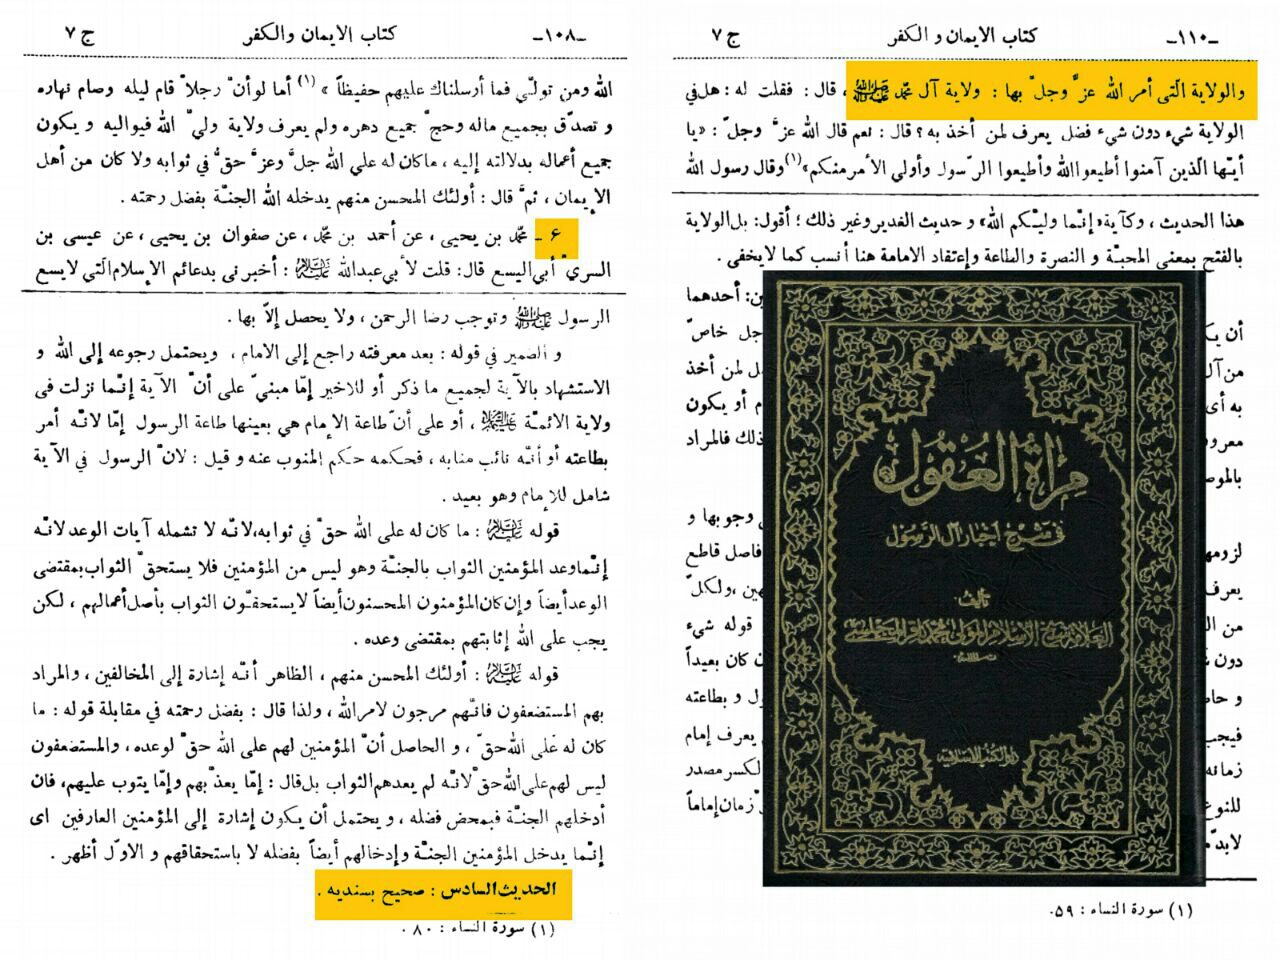 -١٠٨- كتاب الايمان والكفر ج ٧
الله ومن تولّى فما أرسلناك عليهم حفيظاً » (١) أما لو أنّ رجلاً قام ليله وصام نهاره
و تصدّق بجميع ماله وحجّ جميع دهره ولم يعرف ولاية وليّ الله فيواليه و يكون
جميع أعماله بدلالته إليه ، ما كان له على الله جلّ وعزّ حقّ في ثوابه ولا كان من أهل
الإيمان ، ثمّ قال : أولئك المحسن منهم يدخله الله الجنّة بفضل رحمته .
٦ - محمّد بن يحيى ، عن أحمد بن محمّد ، عن صفوان بن يحيى ، عن عيسى بن
السريّ أبي اليسع قال: قلت لأبي عبدالله عليه السلام : أخبرني بدعائم الإسلام الّتي لا يسع
الرسول صلى الله عليه وآله وتوجب رضا الرحمن ، ولا يحصل إلّا بها .
و الضمير في قوله : بعد معرفته راجع إلى الامام ، ويحتمل رجوعه إلى الله و
الاستشهاد بالآية لجميع ما ذكر أو للاخير إمّا مبنيّ على أنّ الآية إنّما نزلت فى
ولاية الائمّة عليهم السلام ، أو على أنّ طاعة الإمام هي بعينها طاعة الرسول إمّا لانّه أمر
بطاعته أو أنّه نائب منابه ، فحكمه حكم المنوب عنه و قيل : لانّ الرسول في الآية
شامل للإمام وهو بعيد .
قوله عليه السلام : ما كان له على الله حقّ في ثوابه، لانّه لا تشمله آيات الوعد لانّه
إنّما وعد المؤمنين الثواب بالجنّة وهو ليس من المؤمنين فلا يستحقّ الثواب بمقتضى
الوعد أيضاً وإن كان المؤمنون المحسنون أيضاً لا يستحقّون الثواب بأصل أعمالهم ، لكن
يجب على الله إثابتهم بمقتضى وعده .
قوله عليه السلام : أولئك المحسن منهم ، الظاهر أنّه إشارة إلى المخالفين ، والمراد
بهم المستضعفون فانّهم مرجون لامرالله ، ولذا قال : بفضل رحمته في مقابلة قوله : ما
كان له على الله حقّ ، و الحاصل أنّ المؤمنين لهم على الله حقّ لوعده ، والمستضعفون
ليس لهم على الله حقّ لانّه لم يعدهم الثواب بل قال : إمّا يعذّبهم وإمّا يتوب عليهم، فان
أدخلهم الجنّة فبمحض فضله ، و يحتمل أن يكون إشارة إلى المؤمنين العارفين اى
إنّما يدخل المؤمنين الجنّة وإدخالهم أيضاً بفضله لا باستحقاقهم و الاوّل أظهر .
الحديث السادس : صحيح بسنديه .
(١) سورة النساء : ٨٠ .
-١١٠- كتاب الايمان و الكفر ج ٧
والولاية الّتى أمر الله عزّ وجلّ بها : ولاية آل محمّد صلى الله عليه وآله ، قال : فقلت له : هل في
الولاية شيء دون شيء فضل يعرف لمن أخذ به ؟ قال : نعم قال الله عزّ وجلّ : «يا
أيّها الّذين آمنوا أطيعوا الله وأطيعوا الرّسول وأولي الأمر منكم»(١) وقال رسول الله
هذا الحديث ، وكآية «إنّما وليّكم الله» و حديث الغدير وغير ذلك ؛ أقول: بل الولاية
بالفتح بمعنى المحبّة و النصرة والطاعة وإعتقاد الامامة هنا أنسب كما لا يخفى .
ين: أحدهما
أن يك جل خاصّ
من آل ل لمن أخذ
به أى م أو يكون
معرو ذلك فالمراد
بالموص
ى وجوبها و
لزوم فاصل قاطع
يعرف هين ، ولكلّ
من الـ قوله شيء
دون ن كان بعيداً
و حا ول و بطاعته
فيجب يعرف إمام
زمانه لكسر مصدر
للنوع زمان إماماً
لا بدّ
(١) سورة النساء : ٥٩.
مرآة العقول
في شرح أخبار آل الرسول
تأليف
العلامة شيخ الاسلام المولى محمد باقر المجلسي
دار الكتب الاسلامية